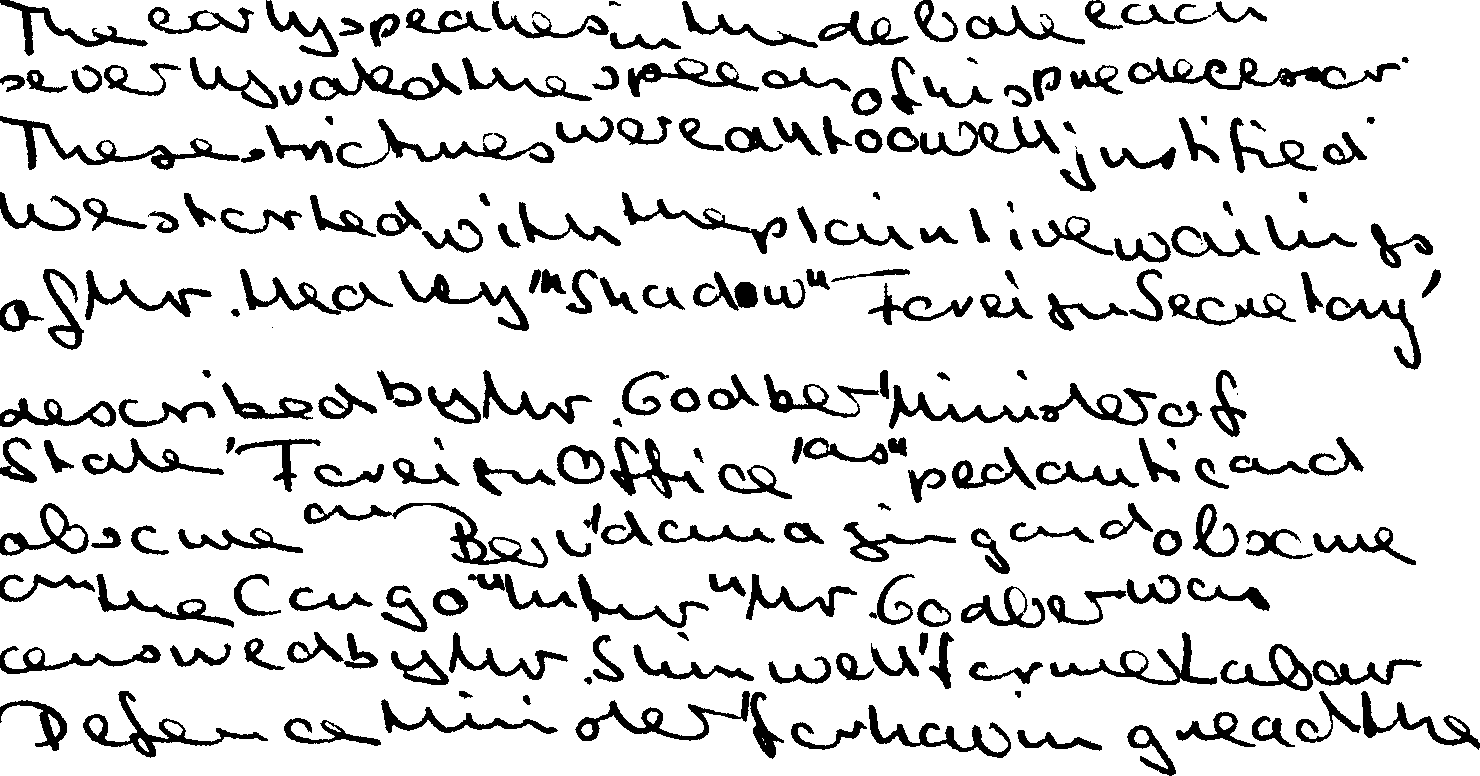 The early speakes in the debate each
severly rated the speech of his predecessor.
These strictures were all too well justified.
We started with the plaintive wailings
of Mr. Healey "Shadow" Foreign Secretary'
described by Mr. Godber 'Minister of
State' Foreign Office 'as" pedantic and
obscure on Berl 'damaging and obscure
on the Congo "In turn "Mr. Godber was
censowed by Mr. Shinwell 'former Labour
Defence Minister' for having read the